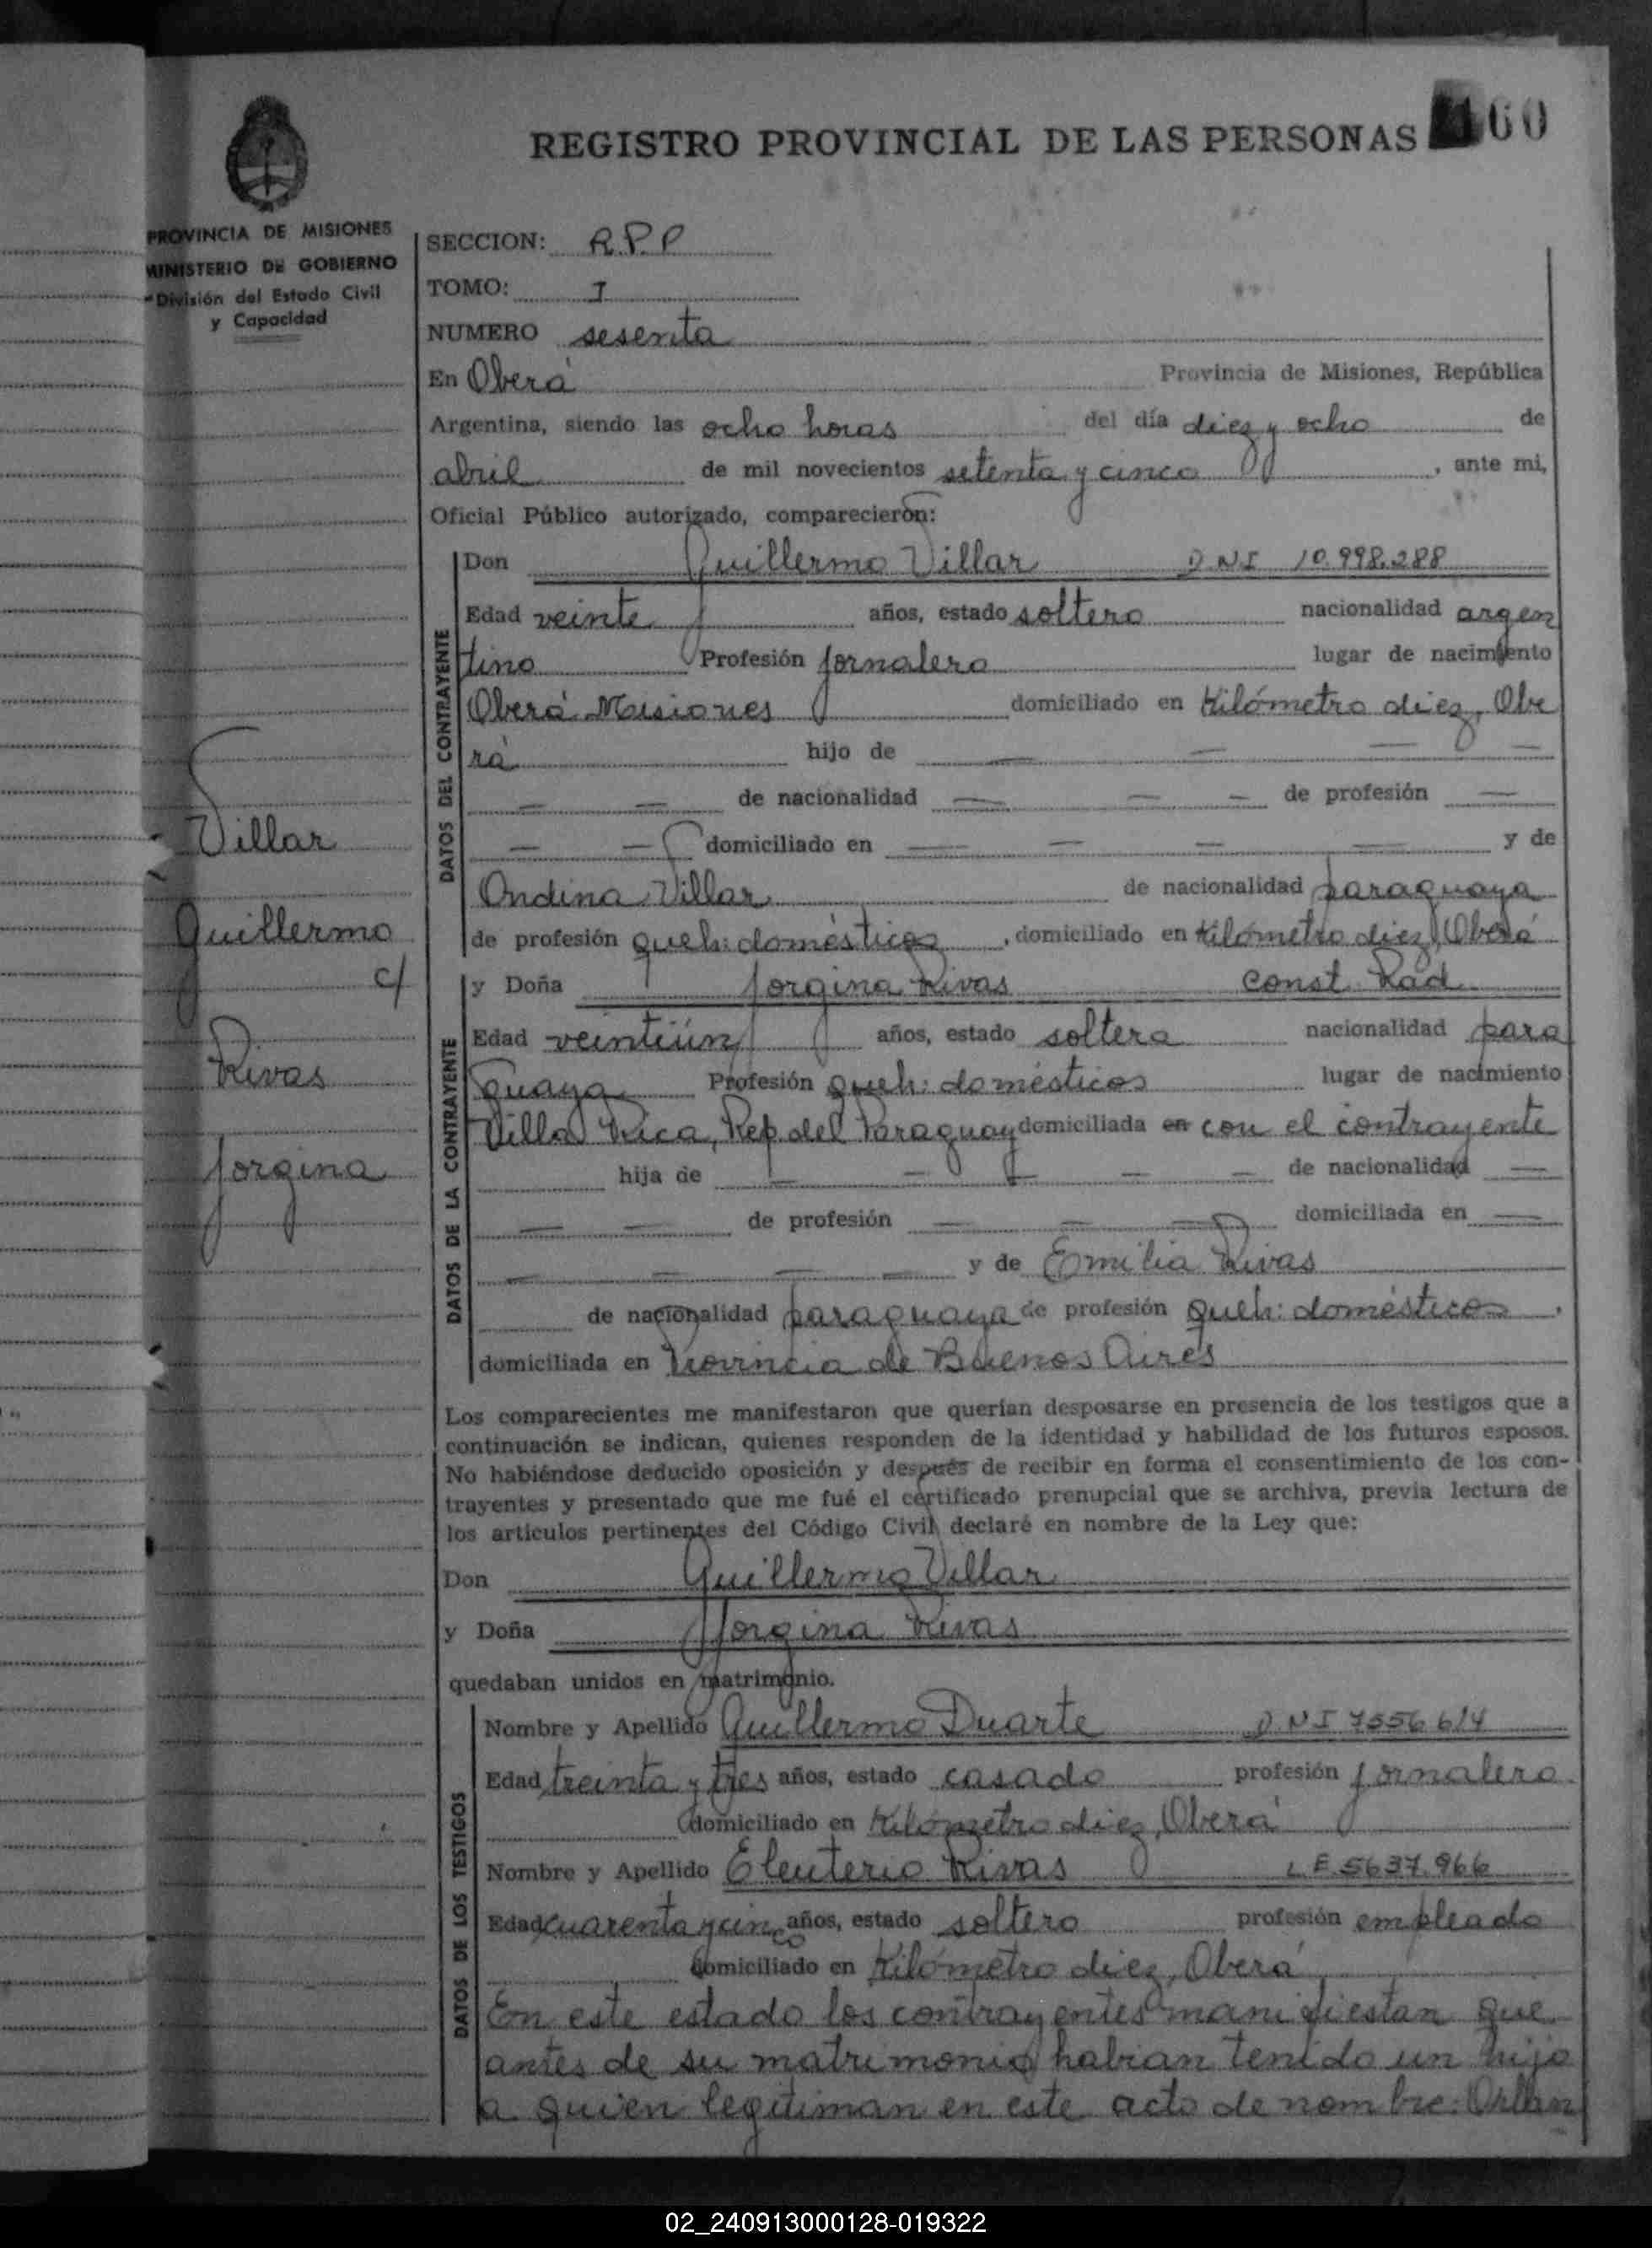 REGISTRO PROVINCIAL DE LAS PERSONAS 60
PROVINCIA DE MISIONES
MINISTERIO DE GOBIERNO
División del Estado Civil
y Capacidad
SECCION: R.P.P
TOMO: I
NUMERO sesenta
En Oberá Provincia de Misiones, República
Argentina, siendo las ocho horas del día diez y ocho de
abril de mil novecientos setenta y cinco, ante mi,
Oficial Público autorizado, comparecieron:
DATOS DEL CONTRAYENTE
Don Guillermo Villar D.N.I 10.998.288
Edad veinte años, estado soltero nacionalidad argen
tino Profesión jornalero lugar de nacimiento
Oberá Misiones domiciliado en Kilómetro diez, Obe
rá hijo de — — — —
— — de nacionalidad — — — de profesión —
— — domiciliado en — — — — y de
Ondina Villar de nacionalidad paraguaya
de profesión queh: domésticos, domiciliado en Kilómetro diez, Oberá
DATOS DE LA CONTRAYENTE
y Doña Jorgina Rivas const. Rad
Edad veintiún años, estado soltera nacionalidad para
guaya Profesión queh: domésticos lugar de nacimiento
Villa Rica, Rep. del Paraguay domiciliada en con el contrayente
hija de — — — — — de nacionalidad —
— — de profesión — — — domiciliada en —
— — — — y de Emilia Rivas
de nacionalidad paraguaya de profesión queh: domésticos.
domiciliada en Provincia de Buenos Aires
Villar
Guillermo
c/
Rivas
Jorgina
Los comparecientes me manifestaron que querían desposarse en presencia de los testigos que a
continuación se indican, quienes responden de la identidad y habilidad de los futuros esposos.
No habiéndose deducido oposición y después de recibir en forma el consentimiento de los con-
trayentes y presentado que me fué el certificado prenupcial que se archiva, previa lectura de
los artículos pertinentes del Código Civil declaré en nombre de la Ley que:
Don Guillermo Villar
y Doña Jorgina Rivas
quedaban unidos en matrimonio.
DATOS DE LOS TESTIGOS
Nombre y Apellido Guillermo Duarte D.N.I 7556614
Edad treinta y tres años, estado casado profesión jornalero
domiciliado en Kilómetro diez, Oberá
Nombre y Apellido Eleuterio Rivas L.E. 5637.966
Edad cuarenta y cinco años, estado soltero profesión empleado
domiciliado en Kilómetro diez, Oberá
En este estado los contrayentes manifiestan que
antes de su matrimonio habian tenido un hijo
a quien legitiman en este acto de nombre: Orlan
02_240913000128-019322